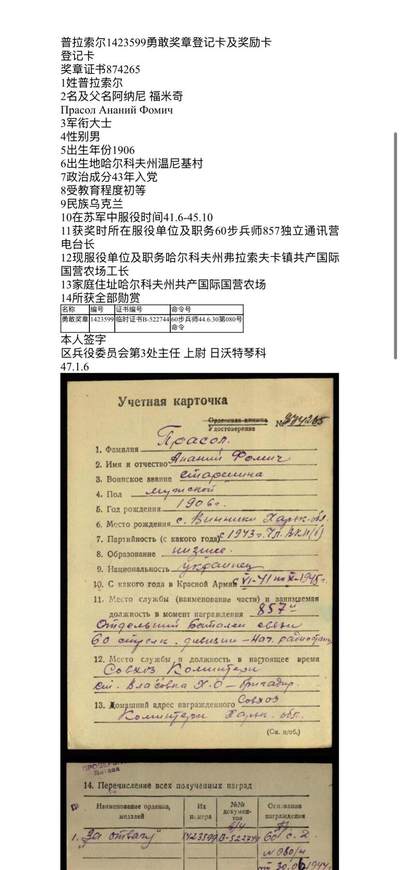 普拉索尔1423599勇敢奖章登记卡及奖励卡
登记卡
奖章证书874265
1姓普拉索尔
2名及父名阿纳尼 福米奇
Прасол Ананий Фомич
3军衔大士
4性别男
5出生年份1906
6出生地哈尔科夫州温尼基村
7政治成分43年入党
8受教育程度初等
9民族乌克兰
10在苏军中服役时间41.6-45.10
11获奖时所在服役单位及职务60步兵师857独立通讯营
电台长
12现服役单位及职务哈尔科夫州弗拉索夫卡镇共产国际
国营农场工长
13家庭住址哈尔科夫州共产国际国营农场
14所获全部勋赏
名称 编号 证书编号 命令号
勇敢奖章 1423599 临时证书B-522744 60步兵师44.6.30第080号
命令
本人签字
区兵役委员会第3处主任 上尉 日沃特琴科
47.1.6
Учетная карточка
Орденская книжка
Удостоверение № 874265
1. Фамилия Прасол.
2. Имя и отчество Ананий Фомич
3. Воинское звание старшина
4. Пол мужской
5. Год рождения 1906 г.
6. Место рождения с. Винники Харьк. обл.
7. Партийность (с какого года) с 1943 г. Чл. ВКП(б)
8. Образование низшее.
9. Национальность украинец
10. С какого года в Красной Армии с VI-41 по X-1945 г.
11. Место службы (наименование части) и занимаемая
должность в момент награждения 857й
Отдельный батальон связи
60 стрелк. дивизии - нач. радиостанц.
12. Место службы и должность в настоящее время
Совхоз Коминтерн
ст. Власовка Х.О - бригадир.
13. Домашний адрес награжденного Совхоз
Коминтерн Харьк. обл.
(См. н/об.)
14. Перечисление всех полученных наград
Наименование ордена, медалей Их номера №№ документов Основания награждения
1. "За отвагу" 1423599 В-522744 60 с. д.
№ 080/н
от 30.06.1944